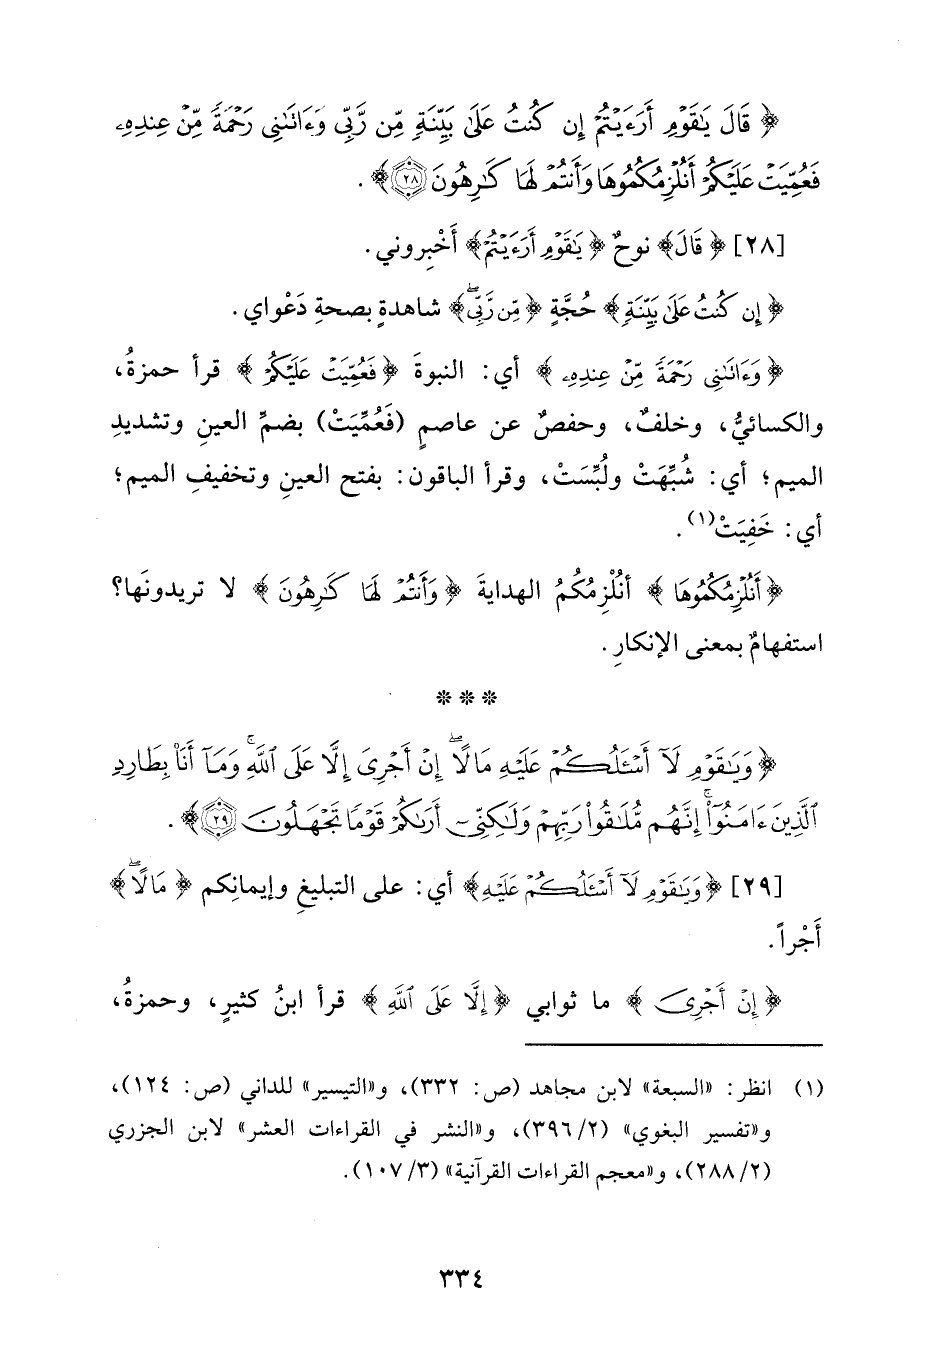 ﴿ قَالَ يَٰقَوْمِ أَرَءَيْتُمْ إِن كُنتُ عَلَىٰ بَيِّنَةٍ مِّن رَّبِّى وَءَاتَىٰنِى رَحْمَةً مِّنْ عِندِهِۦ
فَعُمِّيَتْ عَلَيْكُمْ أَنُلْزِمُكُمُوهَا وَأَنتُمْ لَهَا كَٰرِهُونَ ٢٨ ﴾ .
[٢٨] ﴿ قَالَ﴾ نوحٌ ﴿ يَٰقَوْمِ أَرَءَيْتُمْ﴾ أَخْبِروني .
﴿ إِن كُنتُ عَلَىٰ بَيِّنَةٍ﴾ حُجَّةٍ ﴿ مِّن رَّبِّىۖ﴾ شاهدةٍ بصحةِ دَعْواي .
﴿ وَءَاتَىٰنِى رَحْمَةً مِّنْ عِندِهِۦ ﴾ أي: النبوةَ ﴿ فَعُمِّيَتْ عَلَيْكُمْ ﴾ قرأ حمزةُ،
والكسائيُّ، وخلفٌ، وحفصٌ عن عاصمٍ (فَعُمِّيَتْ) بضمِّ العينِ وتشديدِ
الميم؛ أي: شُبِّهَتْ ولُبِّسَتْ، وقرأ الباقون: بفتح العينِ وتخفيفِ الميم؛
أي: خَفِيَتْ(١) .
﴿ أَنُلْزِمُكُمُوهَا ﴾ أنُلْزِمُكُمُ الهدايةَ ﴿ وَأَنتُمْ لَهَا كَٰرِهُونَ ﴾ لا تريدونَها؟
استفهامٌ بمعنى الإنكارِ .
* * *
﴿ وَيَٰقَوْمِ لَآ أَسْـَٔلُكُمْ عَلَيْهِ مَالًاۖ إِنْ أَجْرِىَ إِلَّا عَلَى ٱللَّهِۚ وَمَآ أَنَا۠ بِطَارِدِ
ٱلَّذِينَ ءَامَنُوٓا۟ۚ إِنَّهُم مُّلَٰقُوا۟ رَبِّهِمْ وَلَٰكِنِّىٓ أَرَىٰكُمْ قَوْمًا تَجْهَلُونَ ٢٩ ﴾ .
[٢٩] ﴿ وَيَٰقَوْمِ لَآ أَسْـَٔلُكُمْ عَلَيْهِ﴾ أي: على التبليغِ وإيمانِكم ﴿ مَالًاۖ﴾
أَجْراً .
﴿ إِنْ أَجْرِىَ ﴾ ما ثوابي ﴿ إِلَّا عَلَى ٱللَّهِ ﴾ قرأ ابنُ كثيرٍ، وحمزةُ،
(١) انظر: «السبعة» لابن مجاهد (ص: ٣٣٢)، و«التيسير» للداني (ص: ١٢٤)،
و«تفسير البغوي» (٢/ ٣٩٦)، و«النشر في القراءات العشر» لابن الجزري
(٢/ ٢٨٨)، و«معجم القراءات القرآنية» (٣/ ١٠٧).
٣٣٤